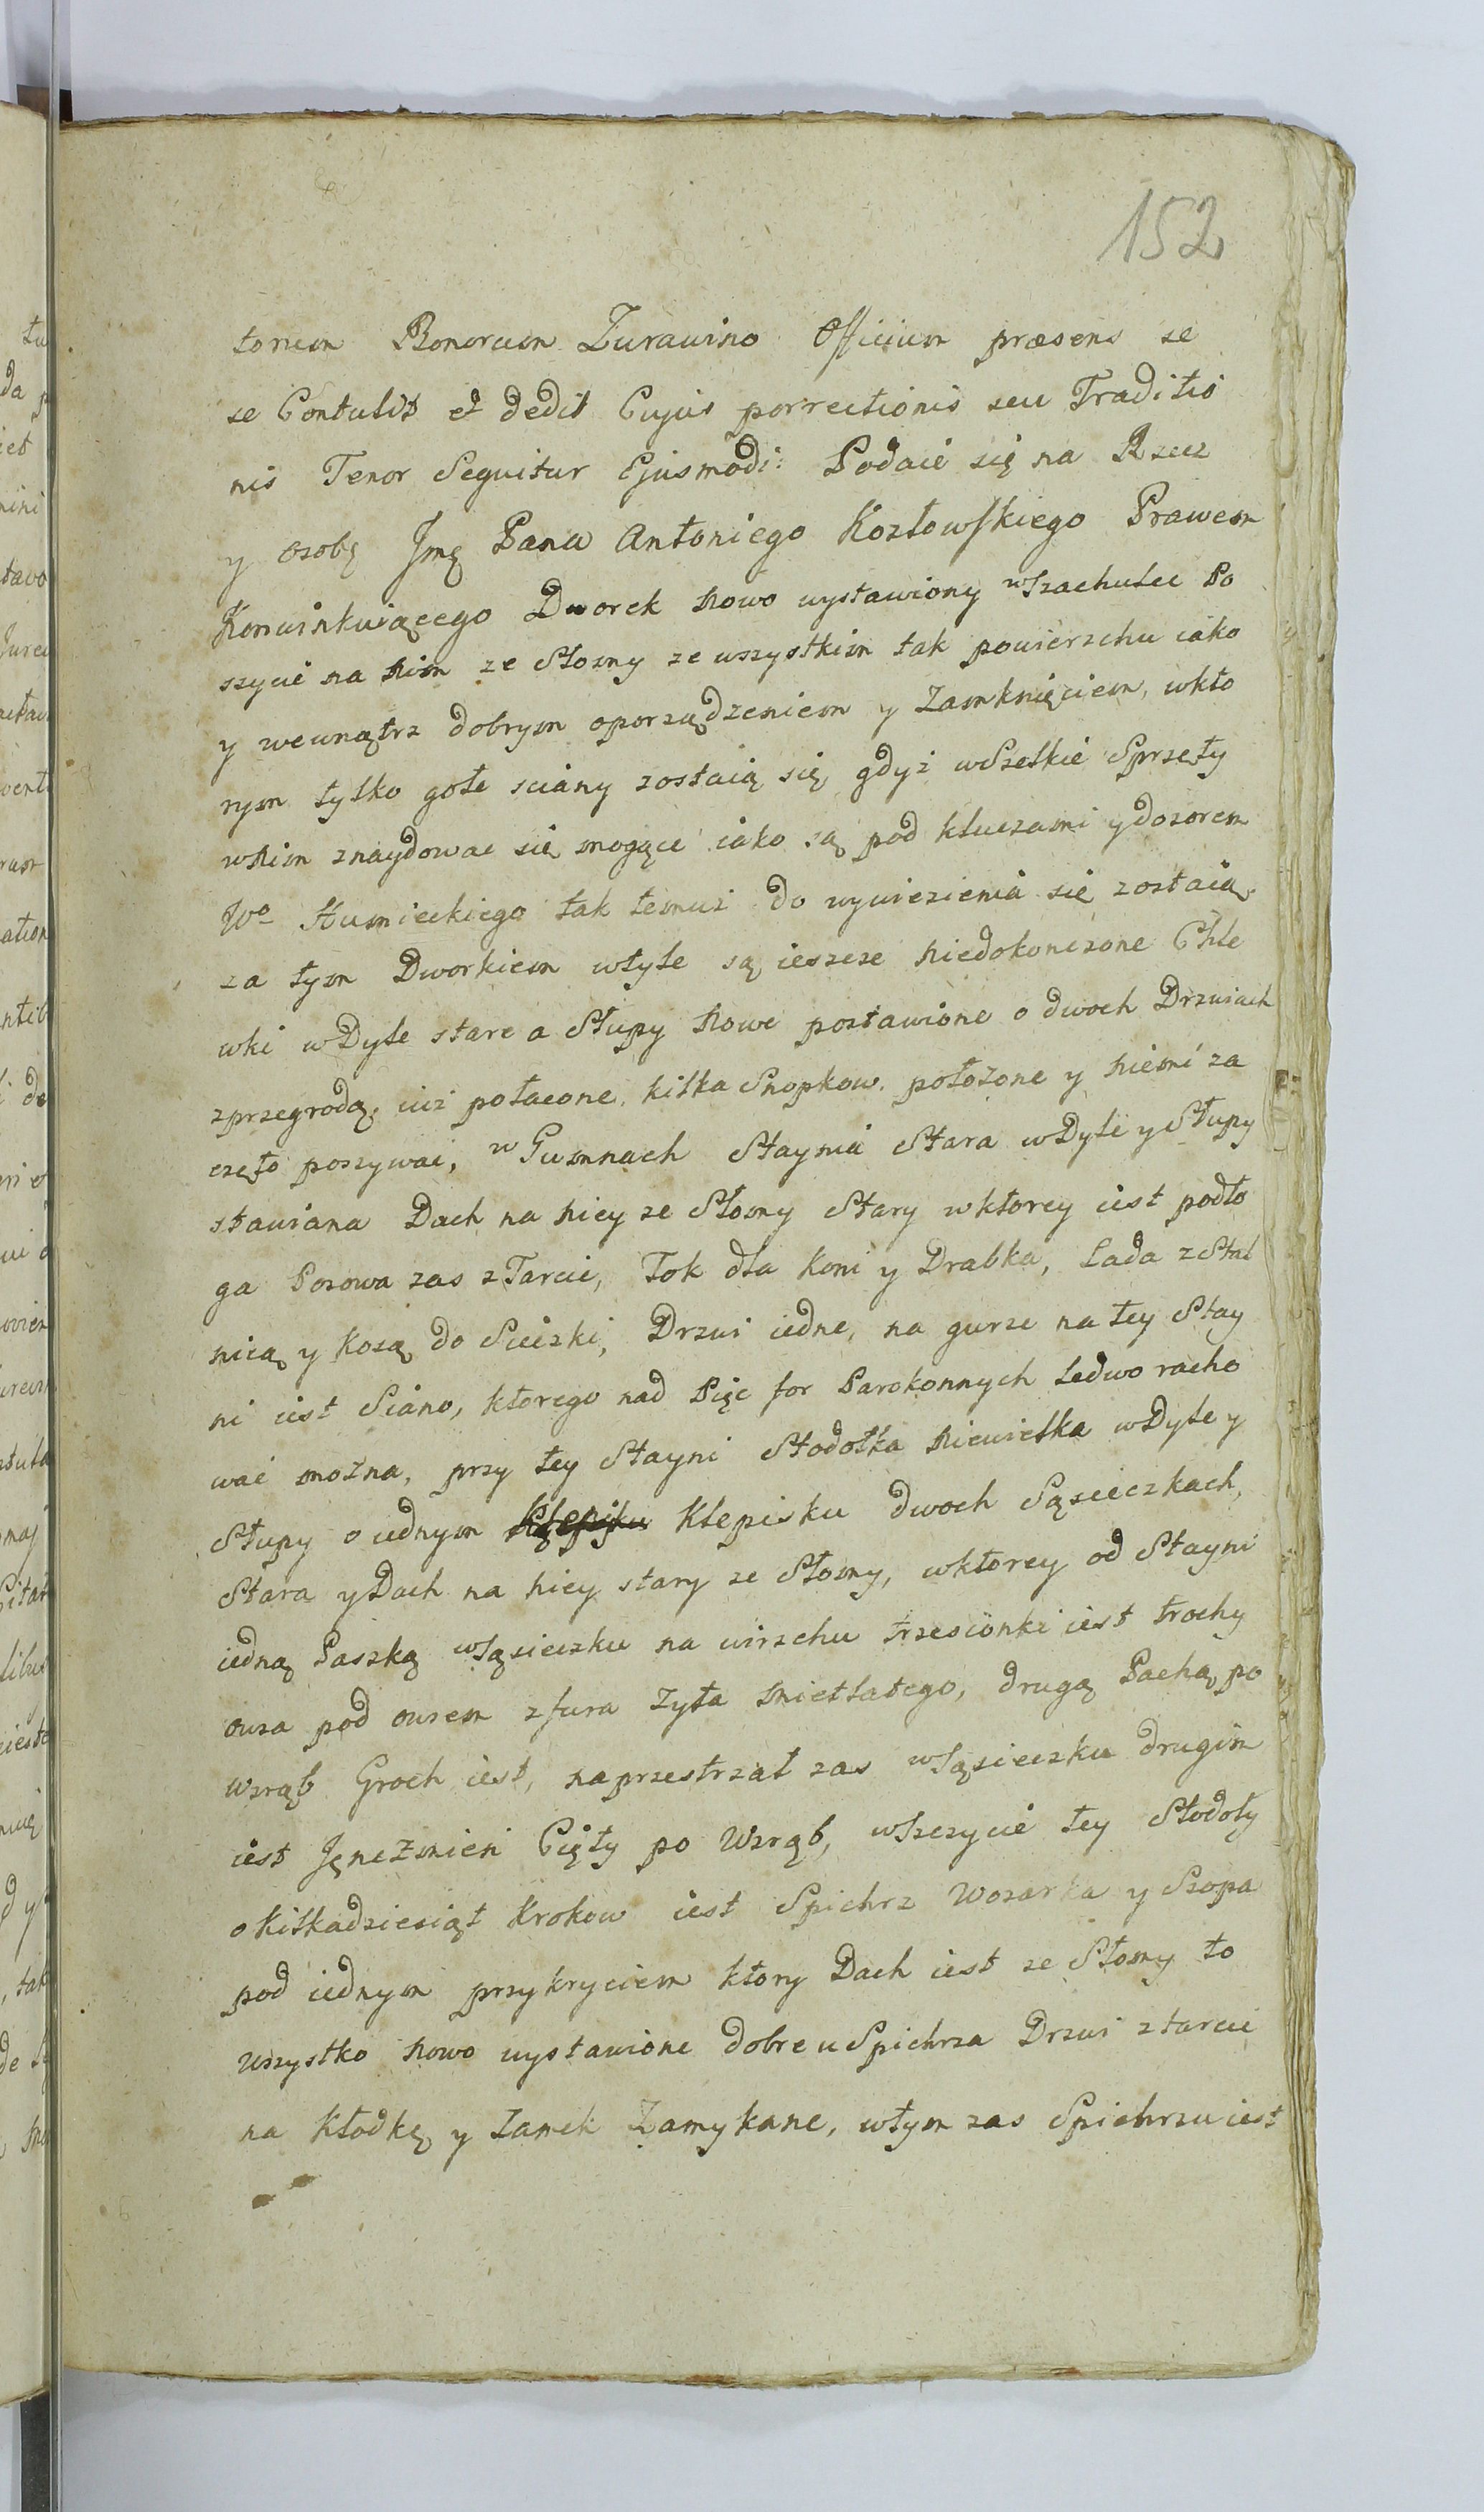 152
torum Bonorum Zurawino Officium præsens se
se Contulit et dedit Cujus porrectionis seu Traditio
nis Tenor Sequitur Ejusmodi: Podaie się na Rzecz
y osobę Jmę Pana Antoniego Kozłowskiego Prawem
Konwinkuiącego Dworek nowo wystawiony w Szachulec Po
szycie na nim ze Słomy ze wszystkim tak powierzchu iako
y wewnątrz dobrym oporządzeniem y Zamknięciem, wkto
rym tylko gołe sciany zostaią się gdyż wszelkie Sprzęty
wnim znaydowac się mogące iako są pod kluczami y dozorem
Wo Humieckiego tak temuż do wywiezienia się zostaią.
za tym Dworkiem wtyle są ieszcze niedokonczone Chle
wki w Dyle stare a Słupy nowe postawione o dwoch Drzwiach
zprzegrodą, iuż połacone, kilka Snopkow położone y niemi za
częto poszywać, w Gumnach Staynia Stara w Dyle y Słupy
stawiana Dach na niey ze Słomy Stary wktorey iest podło
ga Pozowa zas z Tarcic, Tok dla Koni y Drabka, Lada z Stal
nicą y Kosą do Sieczki, Drzwi iedne, na gurze na tey Stay
ni iest Siano, ktorego nad Pięc for Parokonnych Ledwo racho
wać można, przy tey Stayni Stodołka niewielka w Dyle y
Słupy o iednym Klepisku dwoch Sąsieczkach,
Stara y Dach na niey stary ze Słomy, wktorey od Stayni
iedną Paszką w Sąsieczku na wirzchu trzesionki iest trochy
owsa pod owsem z fura Zyta Mietlatego, drugą Pachą po
Wrąb Groch iest, naprzestrzał zas w Sąsieczku drugim
iest Jęneżmień Cięty po Wzrąb, w Szczycie tey Stodoły
o Kilkadziesiąt Krokow iest Spichrz Wozarka y Szopa
pod iednym przykryciem ktory Dach iest ze Słomy to
wszystko nowo wystawione dobre u Spichrza Drzwi z tarcic
na Kłodkę y Zamek Zamykane, wtym zas Spichrzu iest